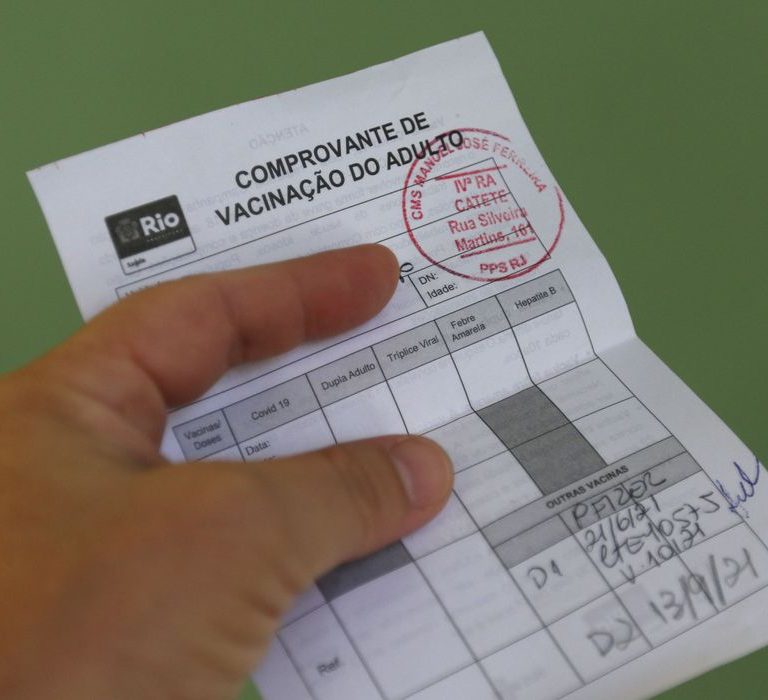 COMPROVANTE DE
VACINAÇÃO DO ADULTO
Rio
PREFEITURA
Saúde
CMS MANOEL JOSÉ FERREIRA
IVª RA
CATETE
Rua Silveira
Martins, 161
PPS RJ
DN:
Idade:
Vacinas/
Doses
Covid 19
Dupla Adulto
Tríplice Viral
Febre
Amarela
Hepatite B
Data:
OUTRAS VACINAS
PFIZER
21/6/21
D1
V. 10/21
D2
13/9/21
Ref.